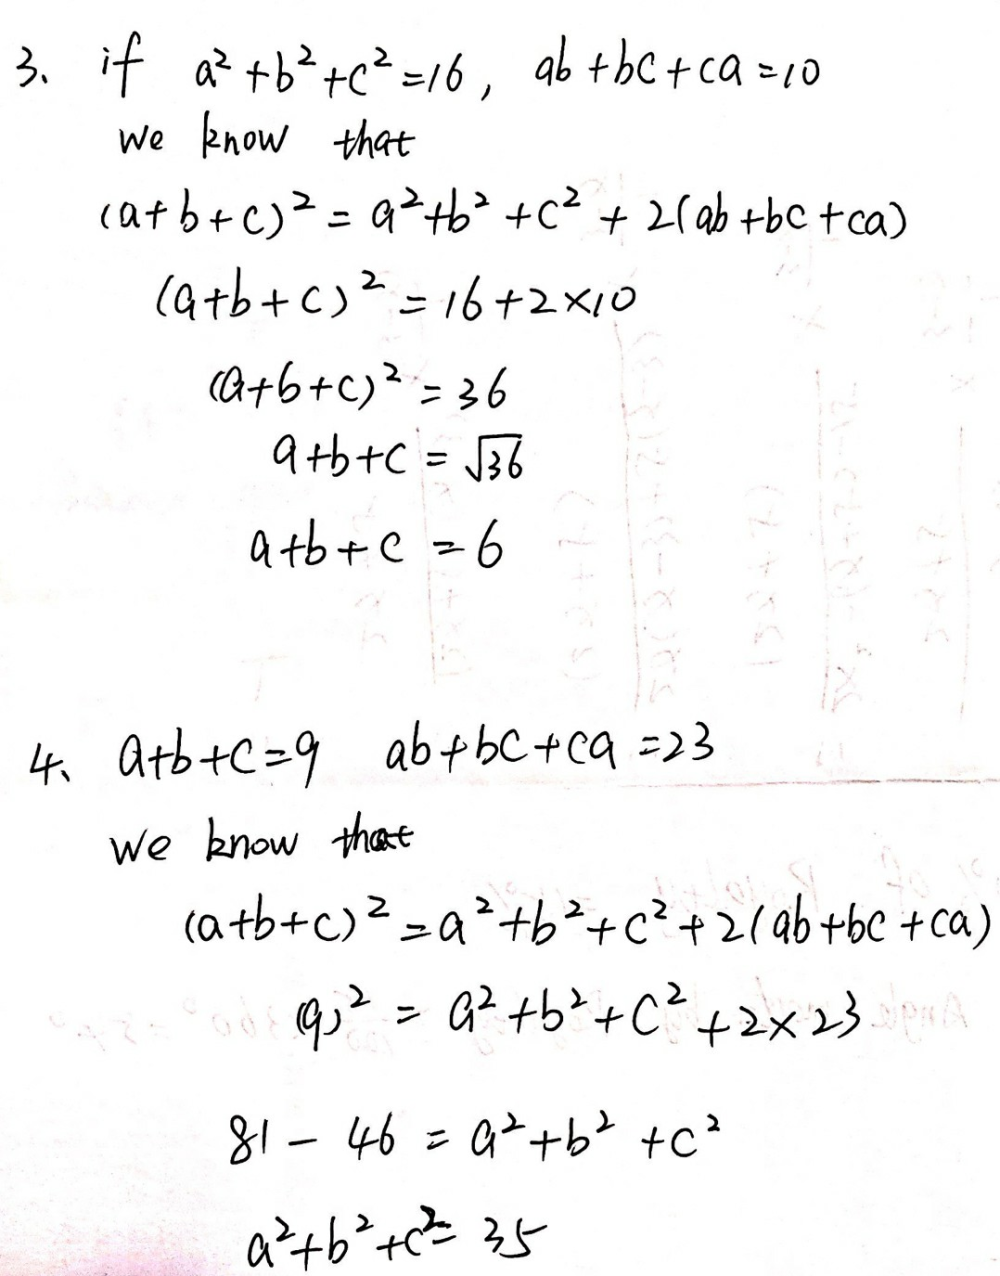 3. if a²+b²+c²=16, ab+bc+ca=10
we know that
(a+b+c)²=a²+b²+c²+2(ab+bc+ca)
(a+b+c)²=16+2×10
(a+b+c)²=36
a+b+c=√36
a+b+c=6
4. a+b+c=9 ab+bc+ca=23
we know that
(a+b+c)²=a²+b²+c²+2(ab+bc+ca)
(9)²=a²+b²+c²+2×23
81-46=a²+b²+c²
a²+b²+c²=35